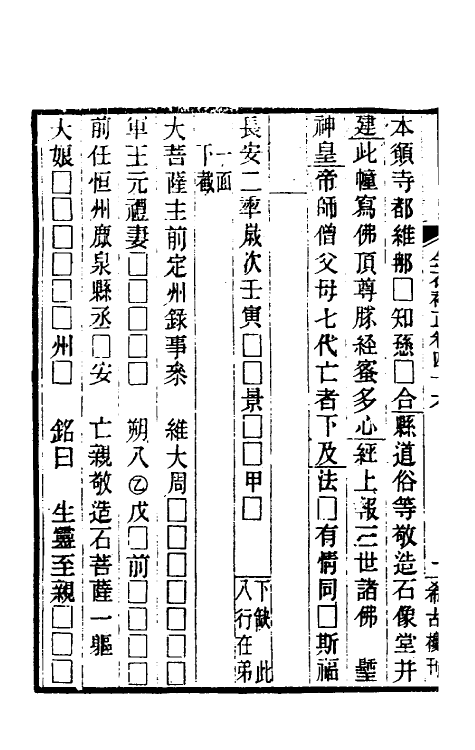 本領寺都維那□知愻□合縣道俗等敬造石像堂并
建此幢寫佛頂尊勝經蜜多心經上報三世諸佛　壂
神皇帝師僧父母七代亡者下及法□有情同□斯福
長安二年嵗次壬寅□□景□□甲□
下缺此
八行在弟
一面
下截
大菩薩主前定州錄事叅　維大周□□□□□□□
軍王元禮妻□□□□□　朔八㊣戊□前□□□□
前任恒州鹿泉縣丞□安　亡親敬造石菩薩一軀
大娘□□□□□□州□　銘曰　生靈至親□□□
金石補正卷四十六
希古樓刊